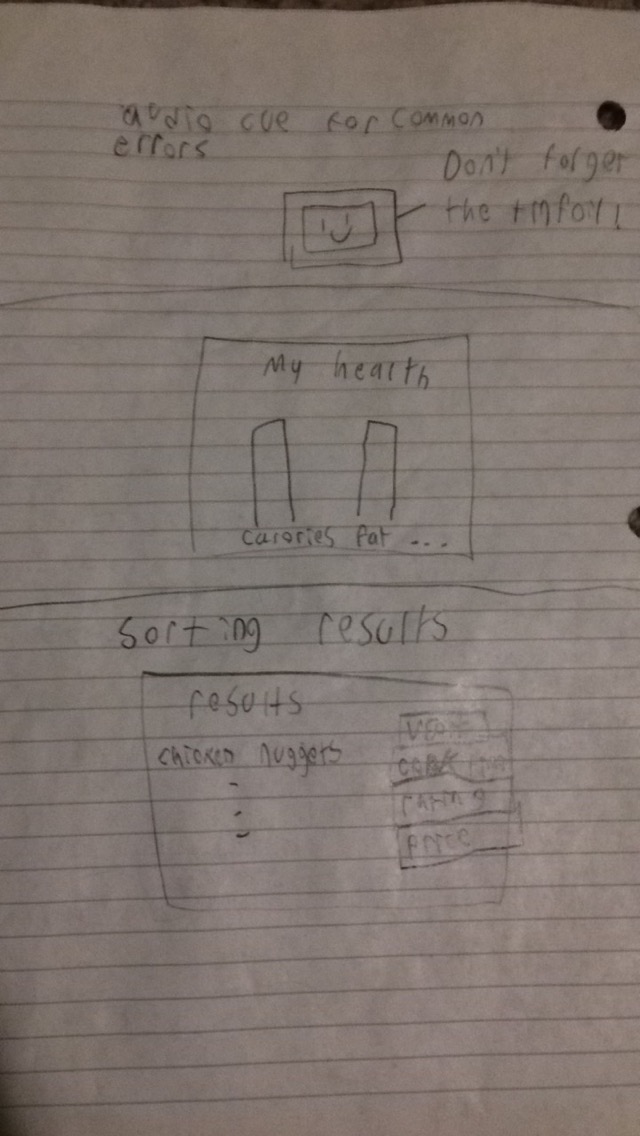 audio cue for common
errors
Don't forget
the tinfoil!
My health
calories fat ...
Sorting results
results
chicken nuggets
rating
price